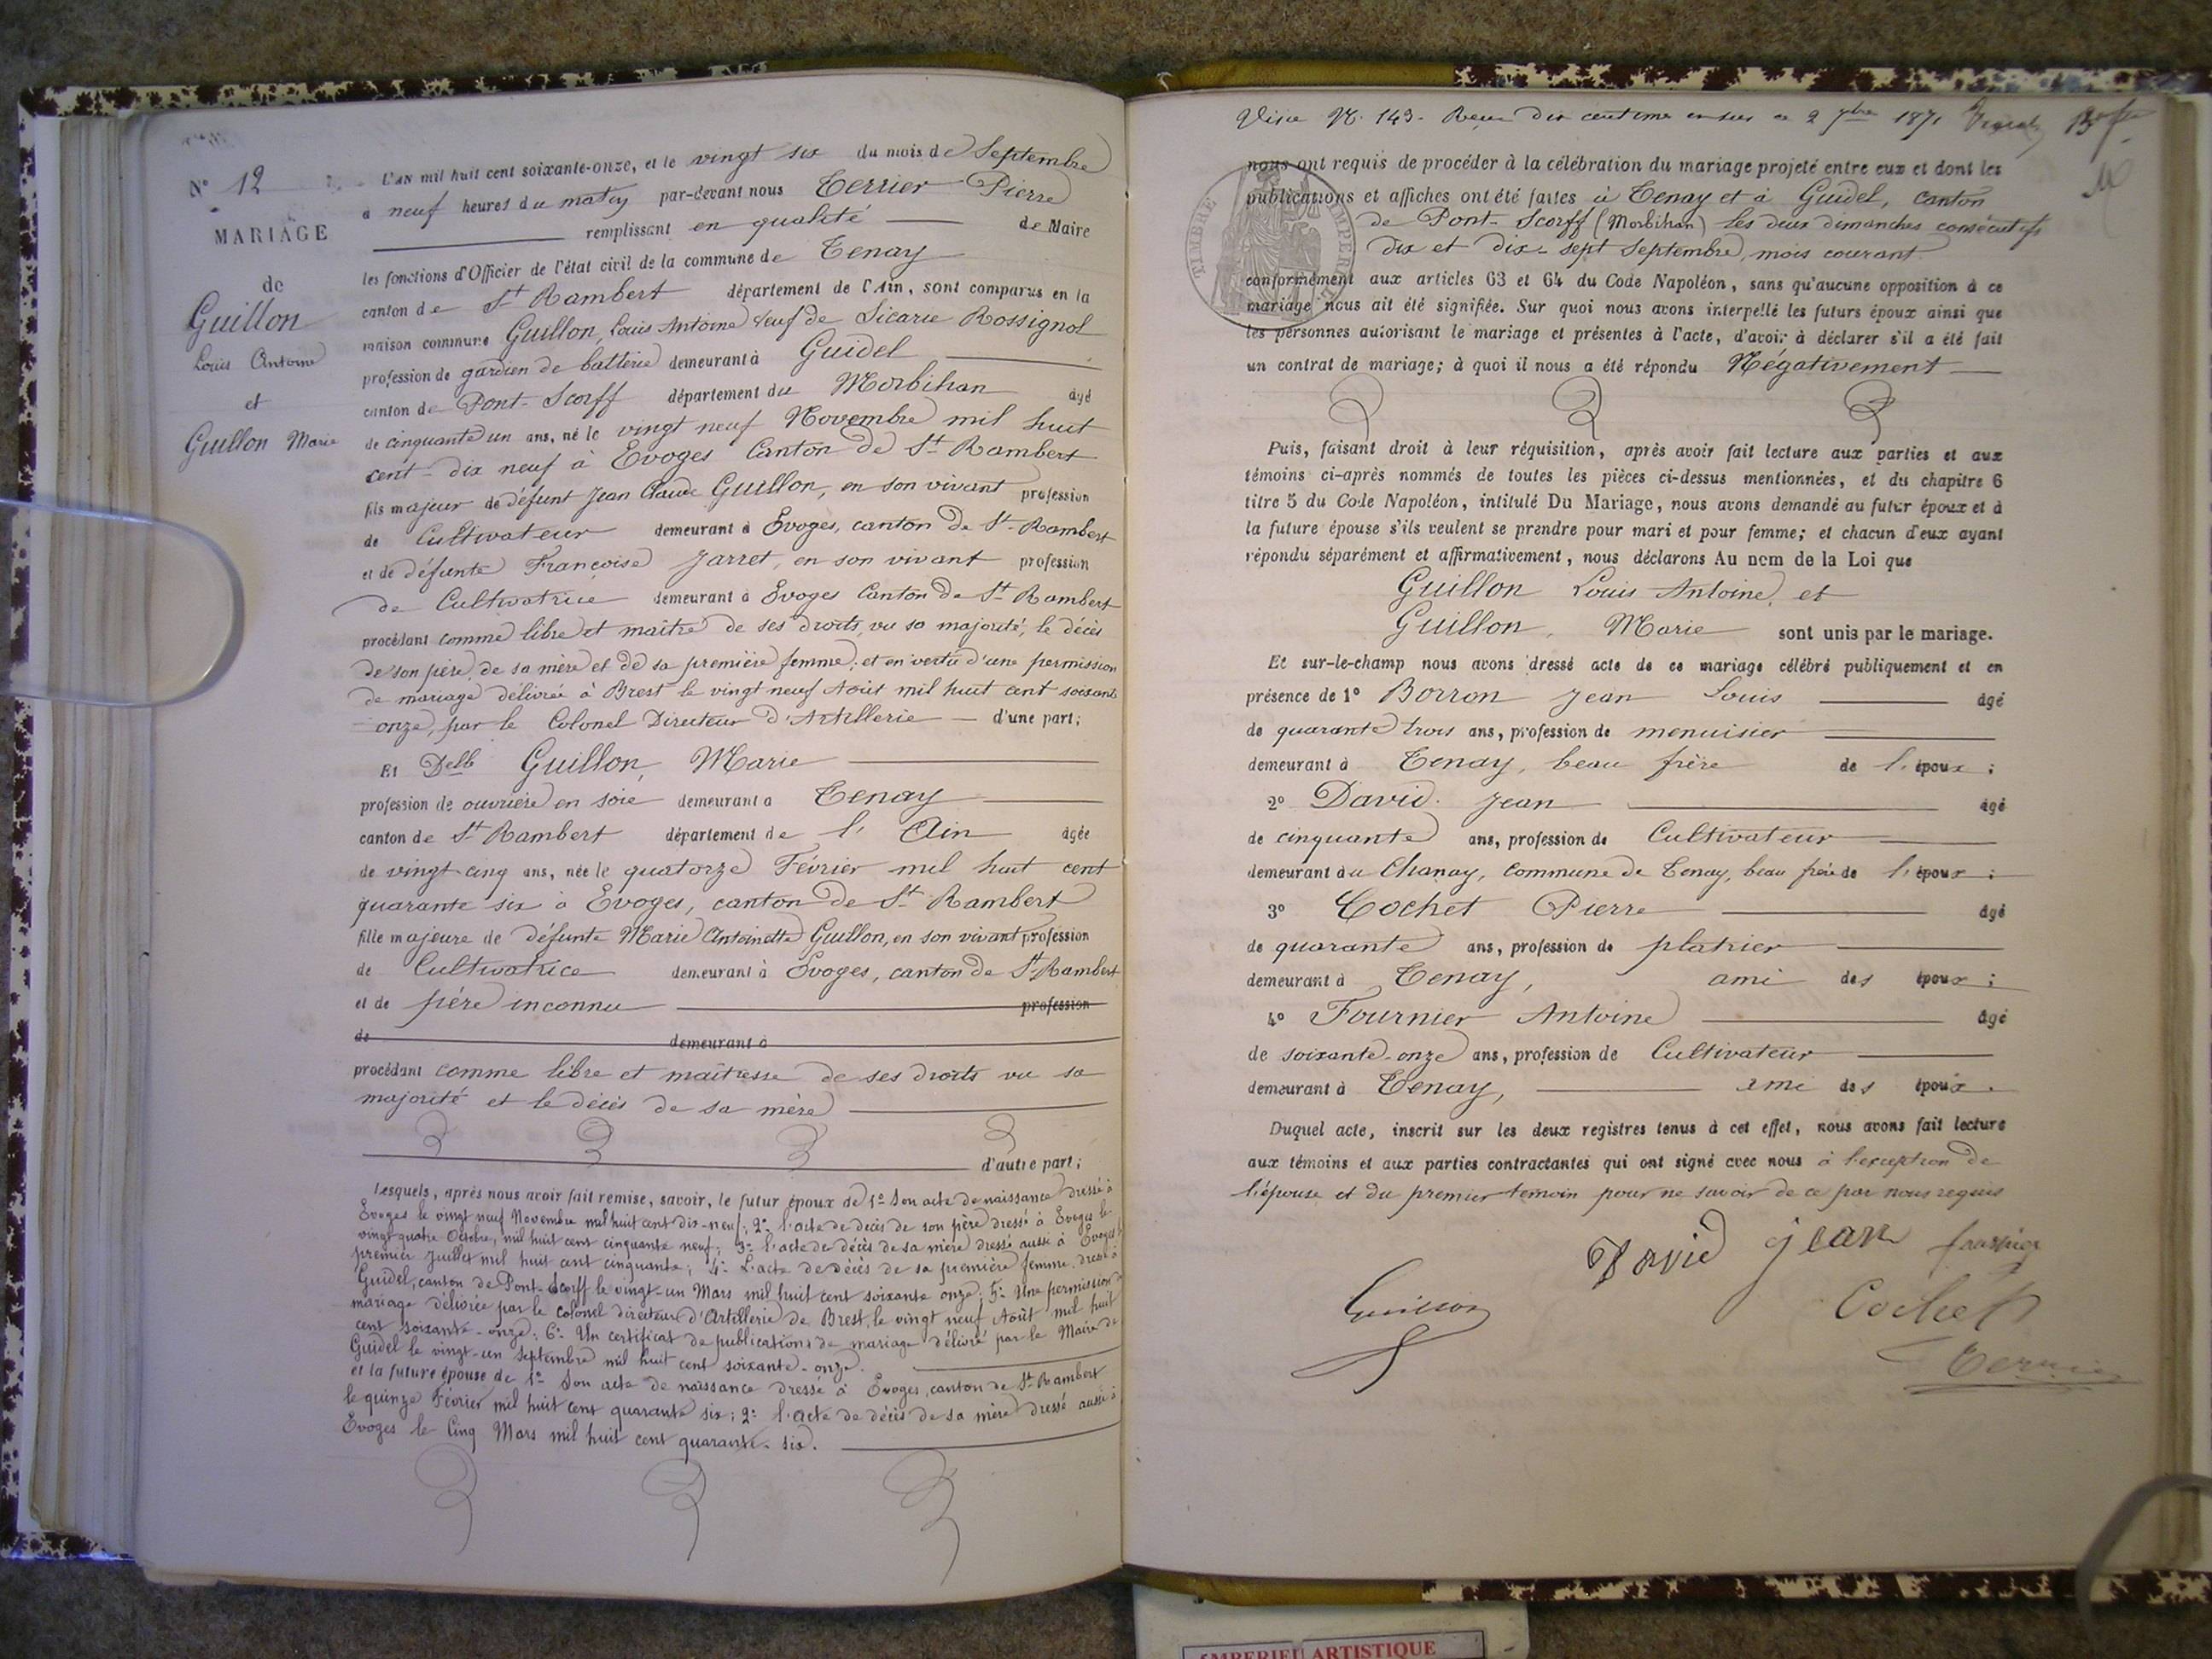 N° 12
MARIAGE
de
Guillon
Louis Antoine
et
Guillon Marie
L'AN mil huit cent soixante-onze, et le vingt six du mois de Septembre
à neuf heures du matin par-devant nous Terrier Pierre
remplissant en qualité de Maire
les fonctions d'Officier de l'état civil de la commune de Tenay
canton de St Rambert département de l'Ain, sont comparus en la
maison commune Guillon, Louis Antoine veuf de Sicarie Rossignol
profession de gardien de batterie demeurant à Guidel
canton de Pont-Scorff département du Morbihan âgé
de cinquante un ans, né le vingt neuf Novembre mil huit
cent-dix neuf à Evoges Canton de St Rambert
fils majeur de défunt Jean Claude Guillon, en son vivant profession
de Cultivateur demeurant à Evoges, canton de St-Rambert
et de défunte Françoise Jarret, en son vivant profession
de Cultivatrice demeurant à Evoges Canton de St Rambert
procédant comme libre et maître de ses droits, vu sa majorité, le décès
de son père, de sa mère et de sa première femme, et en vertu d'une permission
de mariage délivrée à Brest le vingt neuf Août mil huit cent soixante
onze, par le Colonel Directeur d'Artillerie — d'une part;
Et Delle Guillon, Marie
profession de ouvrière en soie demeurant à Tenay
canton de St Rambert département de l'Ain âgée
de vingt-cinq ans, née le quatorze Février mil huit cent
quarante six à Evoges, canton de St Rambert
fille majeure de défunte Marie Antoinette Guillon, en son vivant profession
de Cultivatrice demeurant à Evoges, canton de St Rambert
et de père inconnu profession
de demeurant à
procédant comme libre et maîtresse de ses droits vu sa
majorité et le décès de sa mère
d'autre part;
Lesquels, après nous avoir fait remise, savoir, le futur époux de 1° Son acte de naissance dressé à
Evoges le vingt neuf Novembre mil huit cent dix-neuf; 2° l'acte de décès de son père dressé à Evoges le
vingt quatre Octobre, mil huit cent cinquante neuf; 3° l'acte de décès de sa mère dressé aussi à Evoges le
premier Juillet mil huit cent cinquante; 4° L'acte de décès de sa première femme, dressé à
Guidel, canton de Pont-Scorff le vingt-un Mars mil huit cent soixante onze; 5° Une permission de
mariage délivrée par le Colonel directeur d'Artillerie de Brest, le vingt neuf Août mil huit
cent soixante-onze; 6° Un certificat de publications de mariage délivré par le Maire de
Guidel le vingt-un Septembre mil huit cent soixante-onze.
et la future épouse de 1° Son acte de naissance dressé à Evoges, canton de St Rambert
le quinze Février mil huit cent quarante six; 2° l'acte de décès de sa mère dressé aussi à
Evoges le Cinq Mars mil huit cent quarante-six.
Visé N° 143. Reçu dix centime en sus ce 2 7bre 1871
nous ont requis de procéder à la célébration du mariage projeté entre eux et dont les
publications et affiches ont été faites à Tenay et à Guidel, canton
de Pont-Scorff (Morbihan) les deux dimanches consécutifs
dix et dix-sept Septembre, mois courant
conformément aux articles 63 et 64 du Code Napoléon, sans qu'aucune opposition à ce
mariage nous ait été signifiée. Sur quoi nous avons interpellé les futurs époux ainsi que
les personnes autorisant le mariage et présentes à l'acte, d'avoir à déclarer s'il a été fait
un contrat de mariage; à quoi il nous a été répondu Négativement
TIMBRE IMPÉRIAL
Puis, faisant droit à leur réquisition, après avoir fait lecture aux parties et aux
témoins ci-après nommés de toutes les pièces ci-dessus mentionnées, et du chapitre 6
titre 5 du Code Napoléon, intitulé Du Mariage, nous avons demandé au futur époux et à
la future épouse s'ils veulent se prendre pour mari et pour femme; et chacun d'eux ayant
répondu séparément et affirmativement, nous déclarons Au nom de la Loi que
Guillon Louis Antoine, et
Guillon, Marie sont unis par le mariage.
Et sur-le-champ nous avons dressé acte de ce mariage célébré publiquement et en
présence de 1° Borron Jean Louis âgé
de quarante trois ans, profession de menuisier
demeurant à Tenay, beau frère de l'époux;
2° David Jean âgé
de cinquante ans, profession de Cultivateur
demeurant au Chanay, commune de Tenay, beau frère de l'époux;
3° Cochet Pierre âgé
de quarante ans, profession de platrier
demeurant à Tenay, ami des époux;
4° Fournier Antoine âgé
de soixante-onze ans, profession de Cultivateur
demeurant à Tenay, ami des époux.
Duquel acte, inscrit sur les deux registres tenus à cet effet, nous avons fait lecture
aux témoins et aux parties contractantes qui ont signé avec nous à l'exception de
l'épouse et du premier témoin pour ne savoir de ce par nous requis
David jean fournier
Guillon
Cochet
Terrier
AMBERIEU ARTISTIQUE